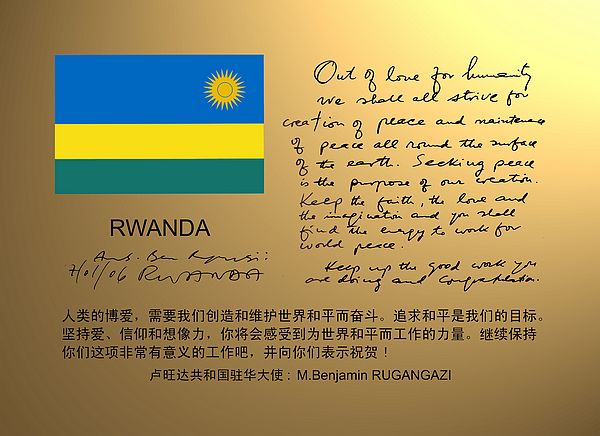 Out of love for humanity
we shall all strive for
creation of peace and maintenance
of peace all round the surface
of the earth. Seeking peace
is the purpose of our creation.
Keep the faith, the love and
the imagination and you shall
find the energy to work for
world peace.
Keep up the good work you
are doing and congratulation.
RWANDA
Amb. Ben
7/01/06 RWANDA
人类的博爱，需要我们创造和维护世界和平而奋斗。追求和平是我们的目标。
坚持爱、信仰和想像力，你将会感受到为世界和平而工作的力量。继续保持
你们这项非常有意义的工作吧，并向你们表示祝贺！
卢旺达共和国驻华大使：M.Benjamin RUGANGAZI